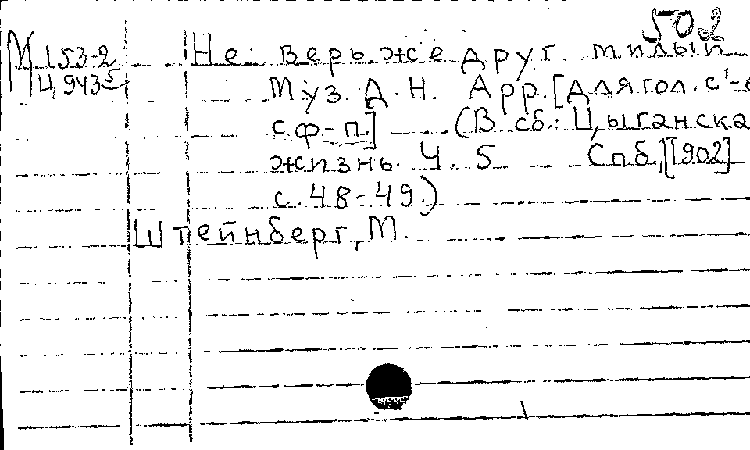 502
М 153-2 Не верь же друг милый
Ц,943⁵ Муз. Д. Н. Арр. [Для гол. с
с ф-п.] (В сб.: Цыганска
жизнь. Ч. 5 Спб, [902]
с. 48-49.)
Штейнберг, М.